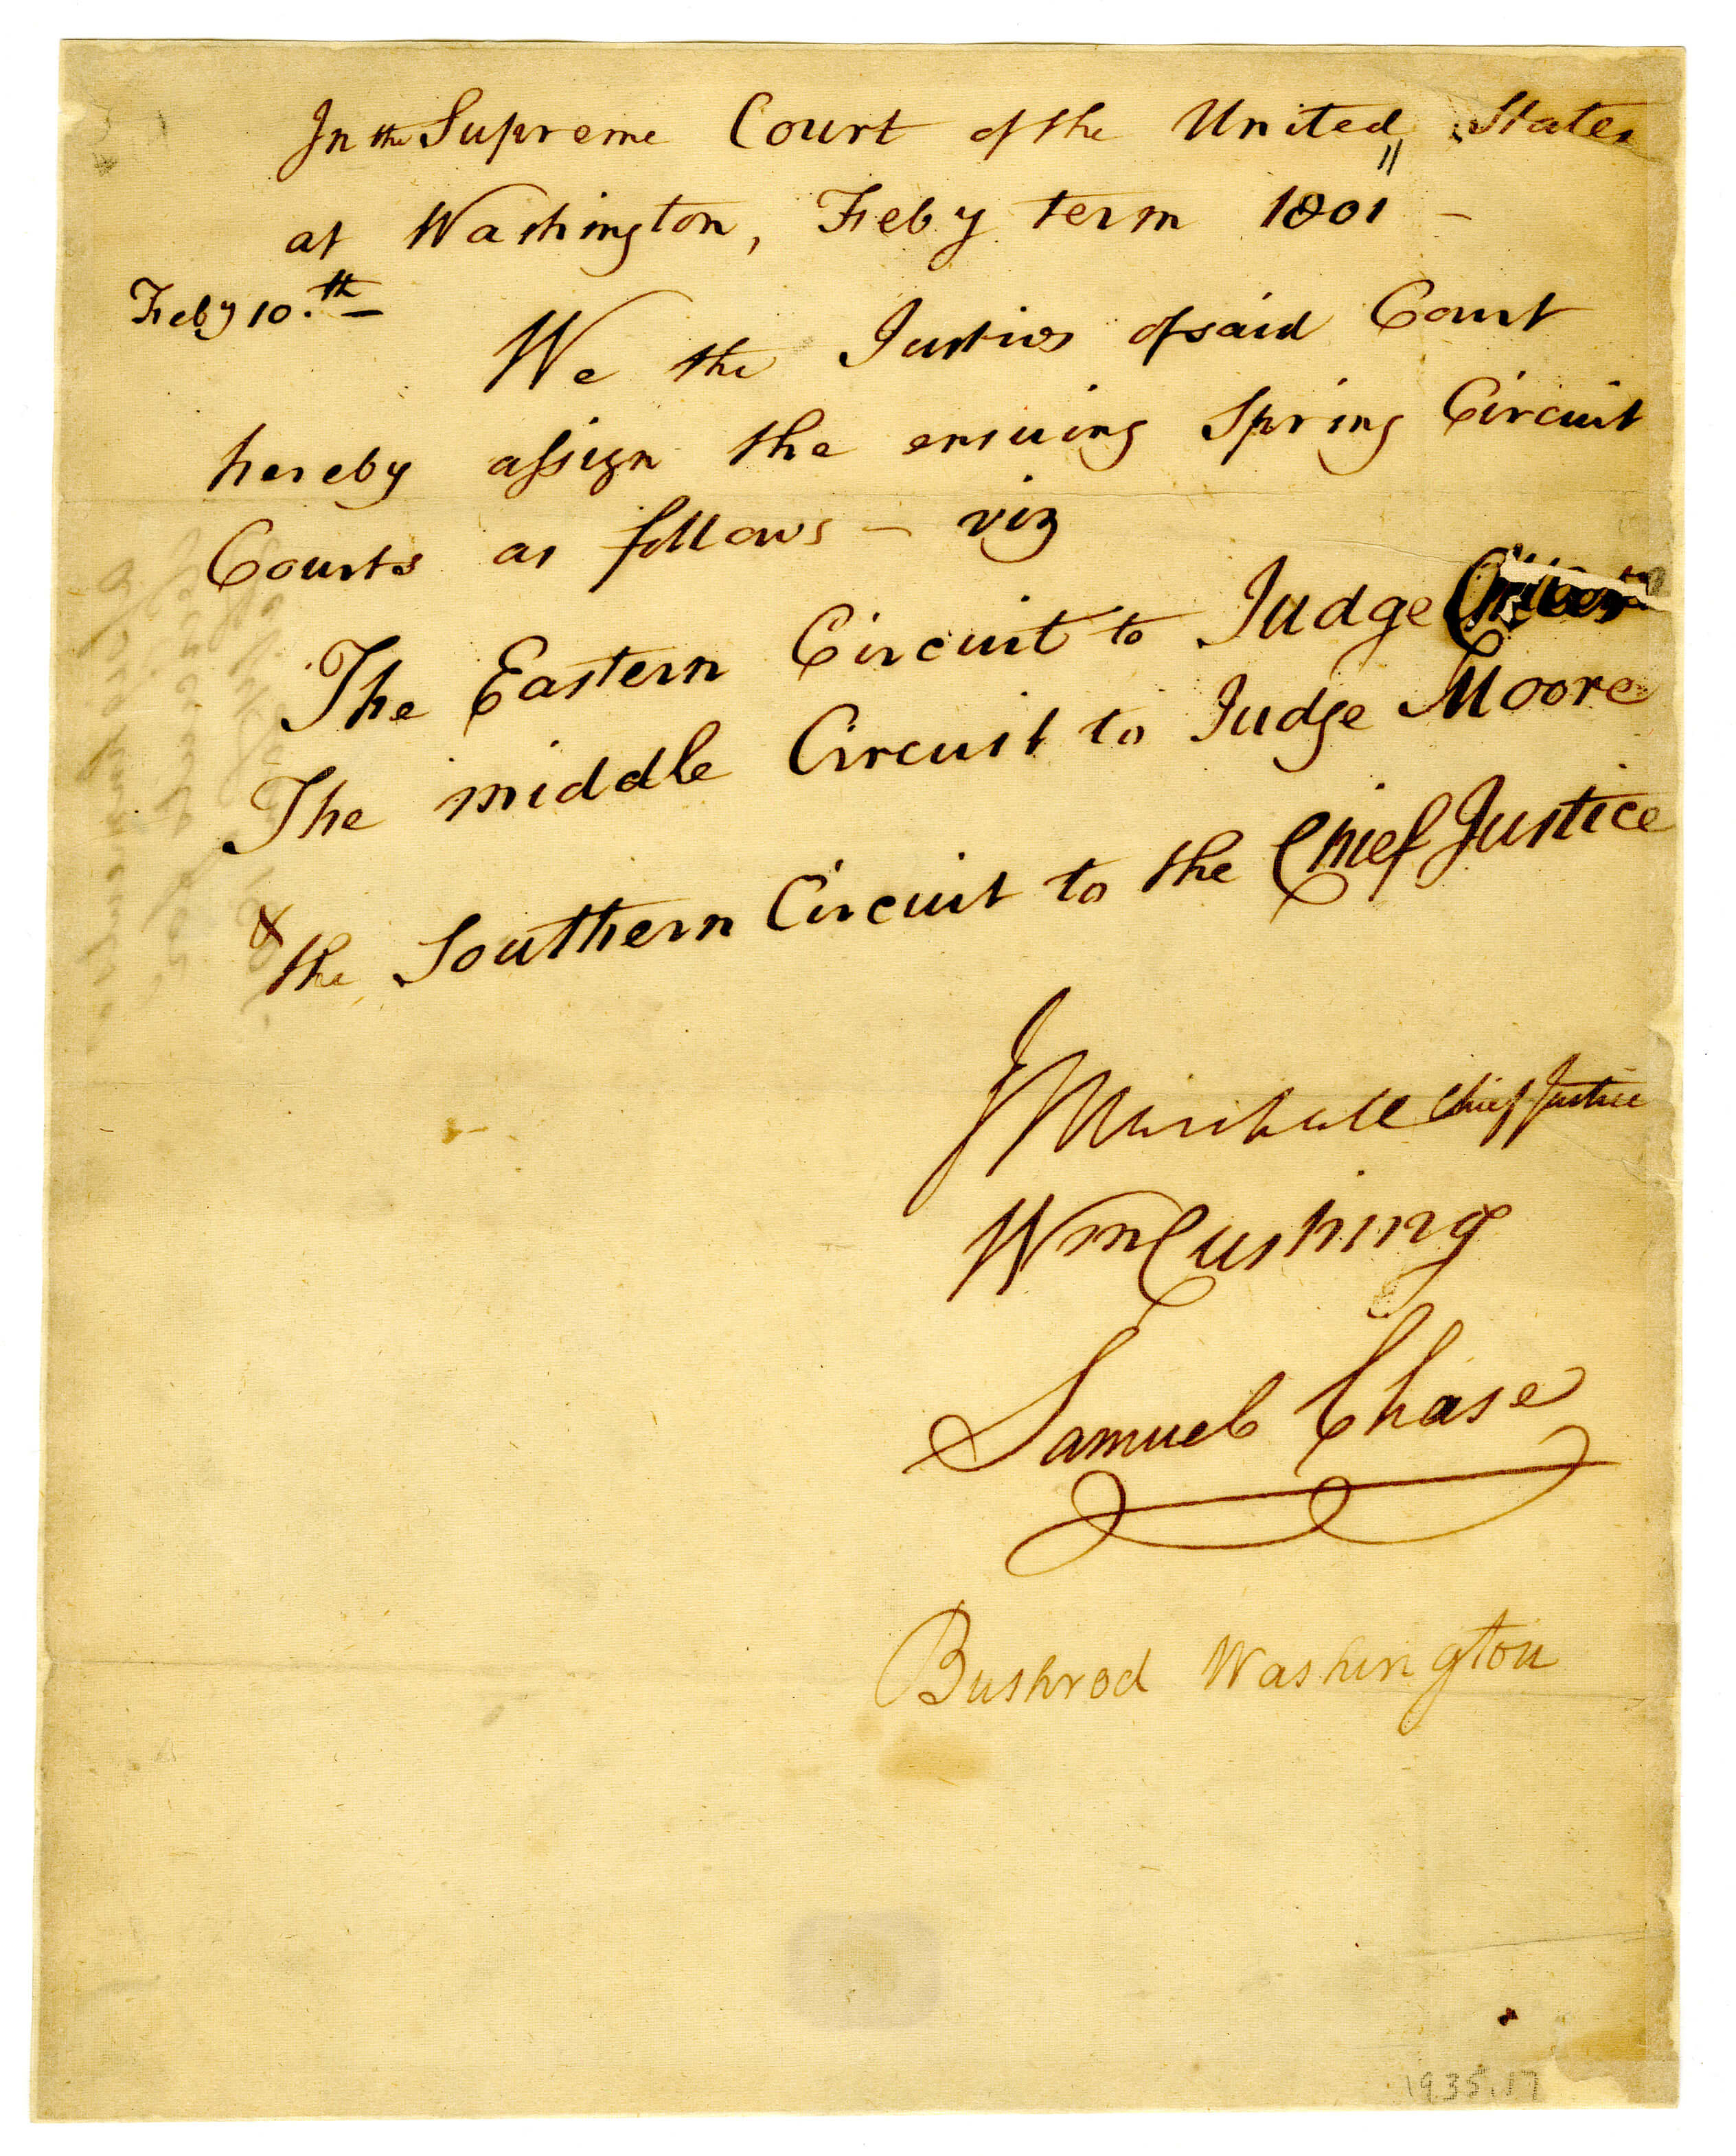 In the Supreme Court of the United States
at Washington, Feby term 1801 –
Feby 10.th –
We the Justices of said Court
hereby assign the ensuing Spring Circuit
Courts as follows – viz
The Eastern Circuit to Judge
The middle Circuit to Judge Moore
& the Southern Circuit to the Chief Justice
J Marshall Chief Justice
Wm Cushing
Samuel Chase
Bushrod Washington
1935.17